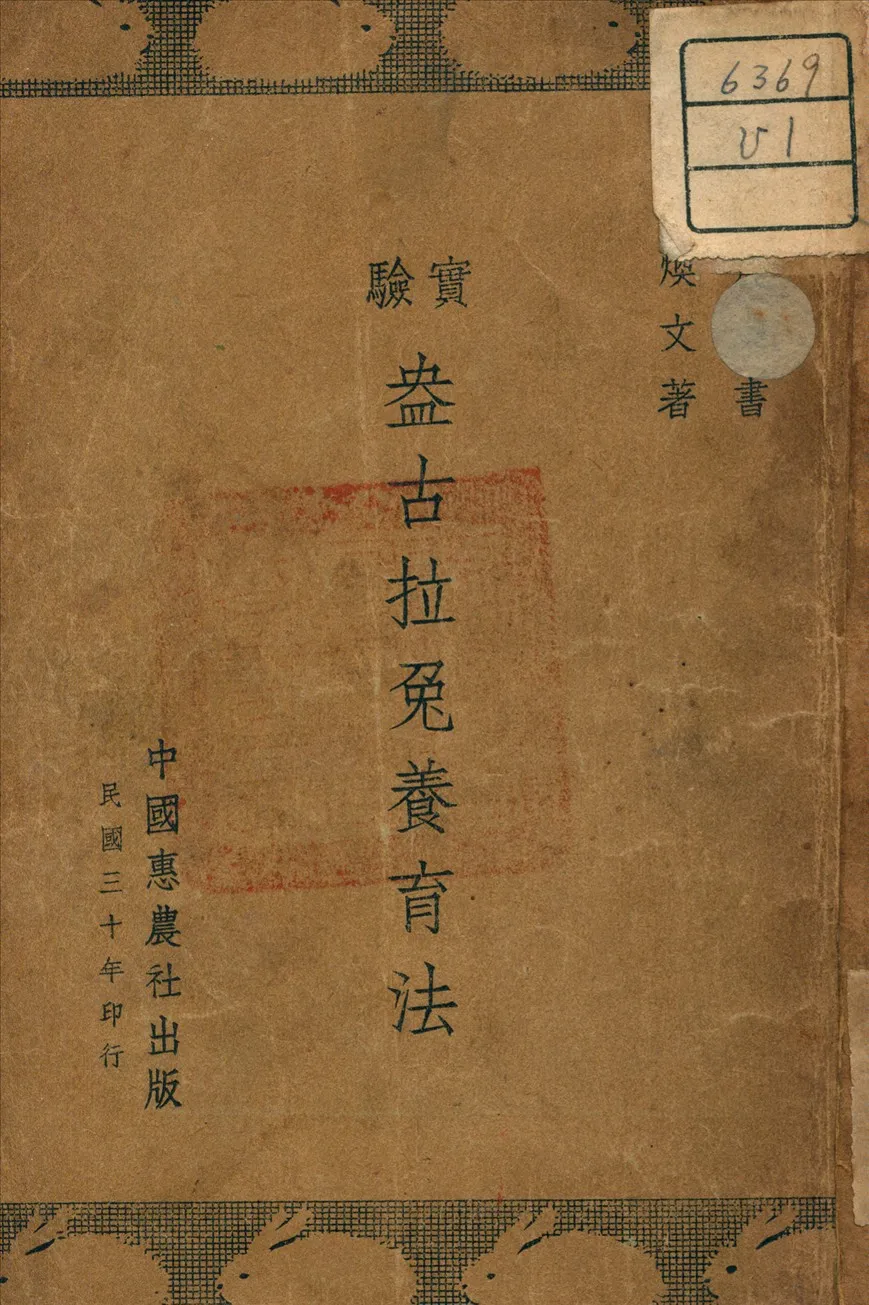 6369
v1
書
煥文著
實驗
盎古拉兔養育法
中國惠農社出版
民國三十年印行